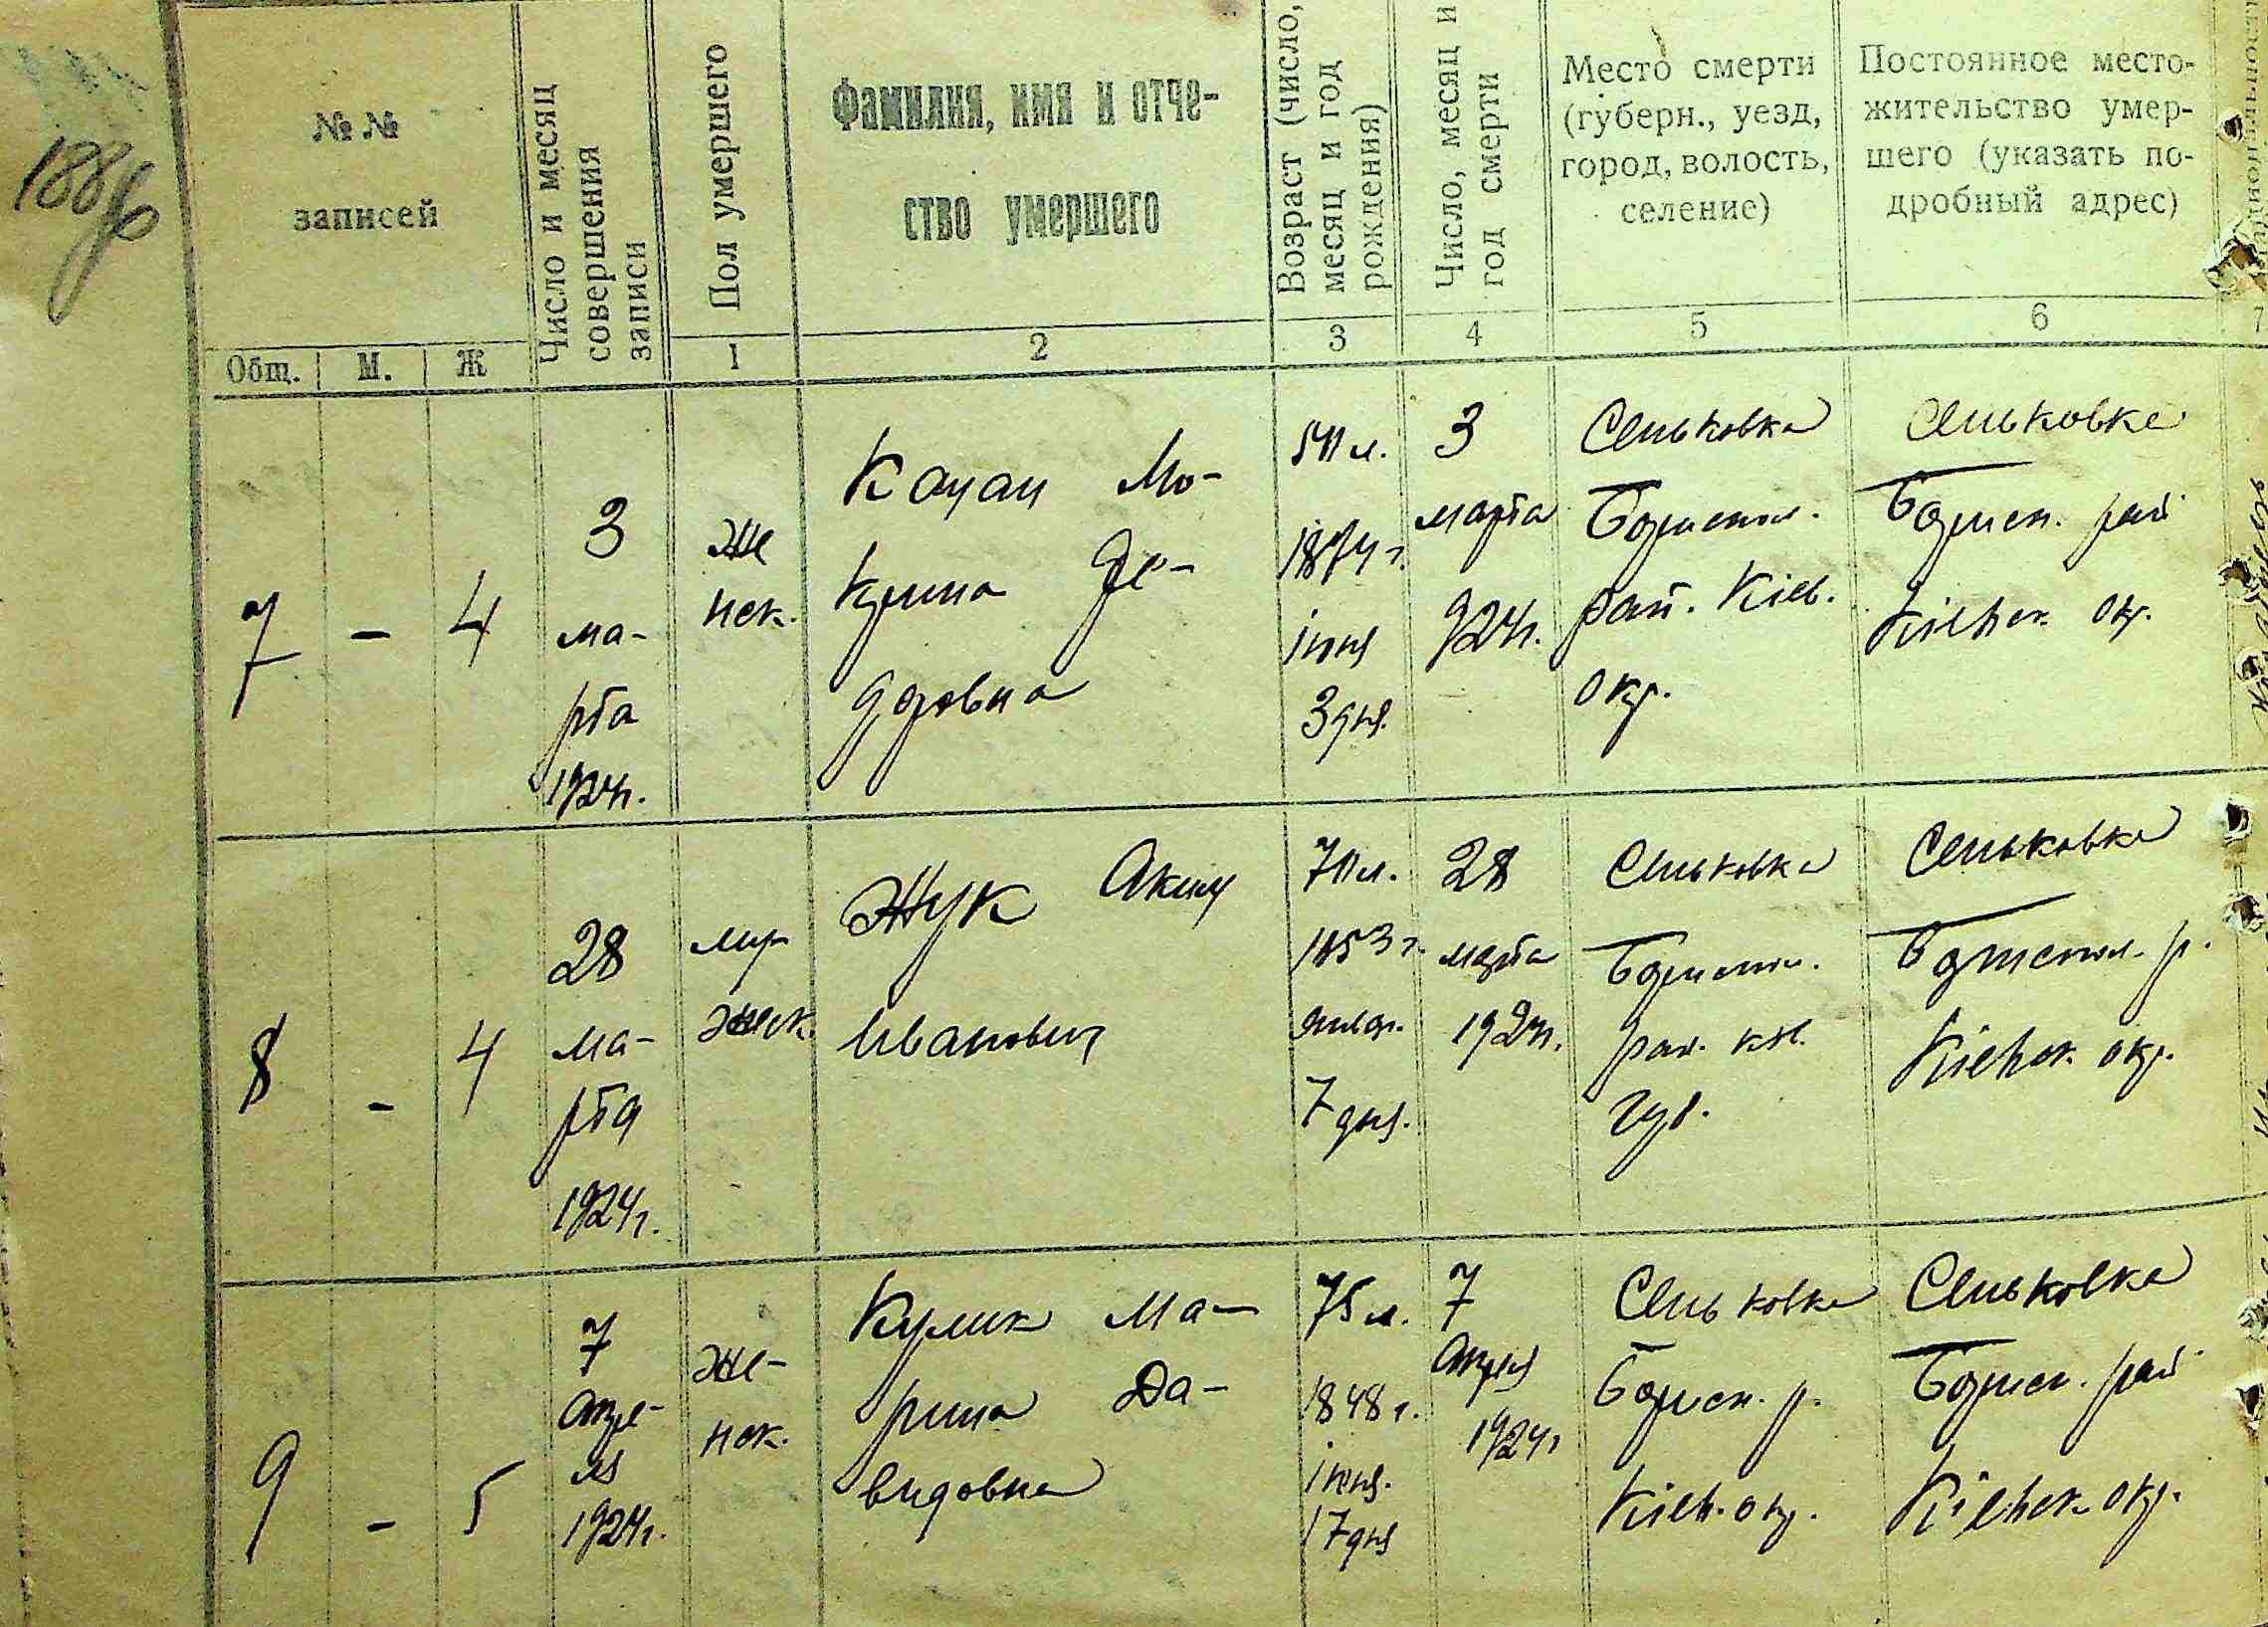 № №
записей
Общ. М. Ж
Число и месяц совершения записи
Пол умершего
Фамилия, имя и отче-
ство умершего
Возраст (число, месяц и год рождения)
Число, месяц и год смерти
Место смерти
(губерн., уезд,
город, волость,
селение)
Постоянное место-
жительство умер-
шего (указать по-
дробный адрес)
1 2 3 4 5 6
7 - 4
3
ма-
рта
1924г.
же
нск.
Качан Мо-
крина Фе-
доровна
1874 г.
июня
3 дня.
3
марта
924г.
Сеньковка
Бориспол.
рай. Киев.
окр.
Сеньковка
Борисп. рай
Киевск. окр.
8 - 4
28
ма-
рта
1924г.
му-
жск.
Жук Аким
Иванович
70 л.
1853 г.
январ.
7 дня.
28
марта
1924г.
Сеньковка
Бориспол.
рай. Кив.
губ.
Сеньковка
Бориспол. р.
Киевск. окр.
9 - 5
7
апре-
ля
1924г.
же-
нск.
Кулик Ма-
рина Да-
видовна
75 л.
1848 г.
июня.
17 дня
7
апреля
1924г
Сеньковка
Борисп. р.
Киев. окр.
Сеньковка
Борисп. рай
Киевск окр.